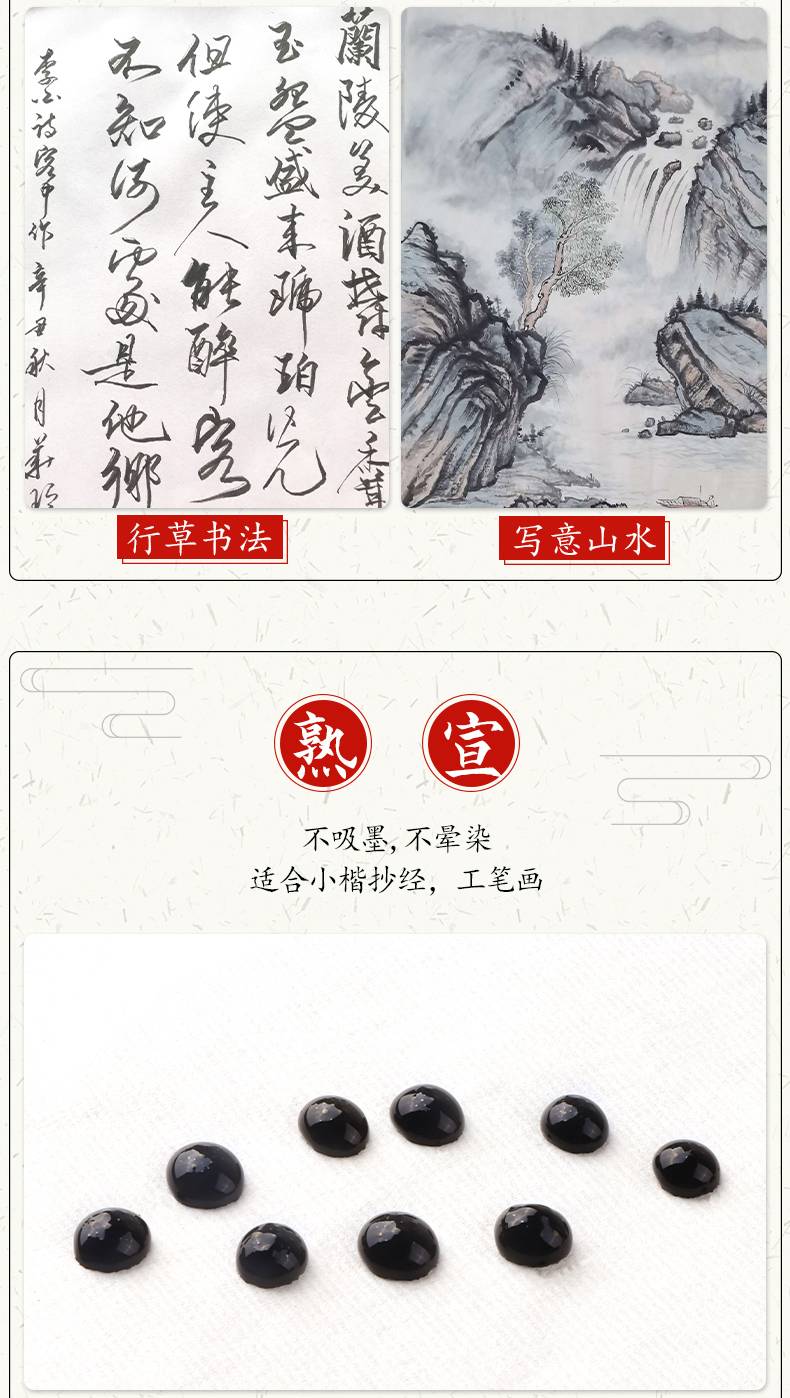 蘭陵美酒欝金香
玉盌盛来琥珀光
但使主人能醉客
不知何處是他鄉
李白詩客中作 辛丑秋月
行草书法
写意山水
熟 宣
不吸墨,不晕染
适合小楷抄经，工笔画